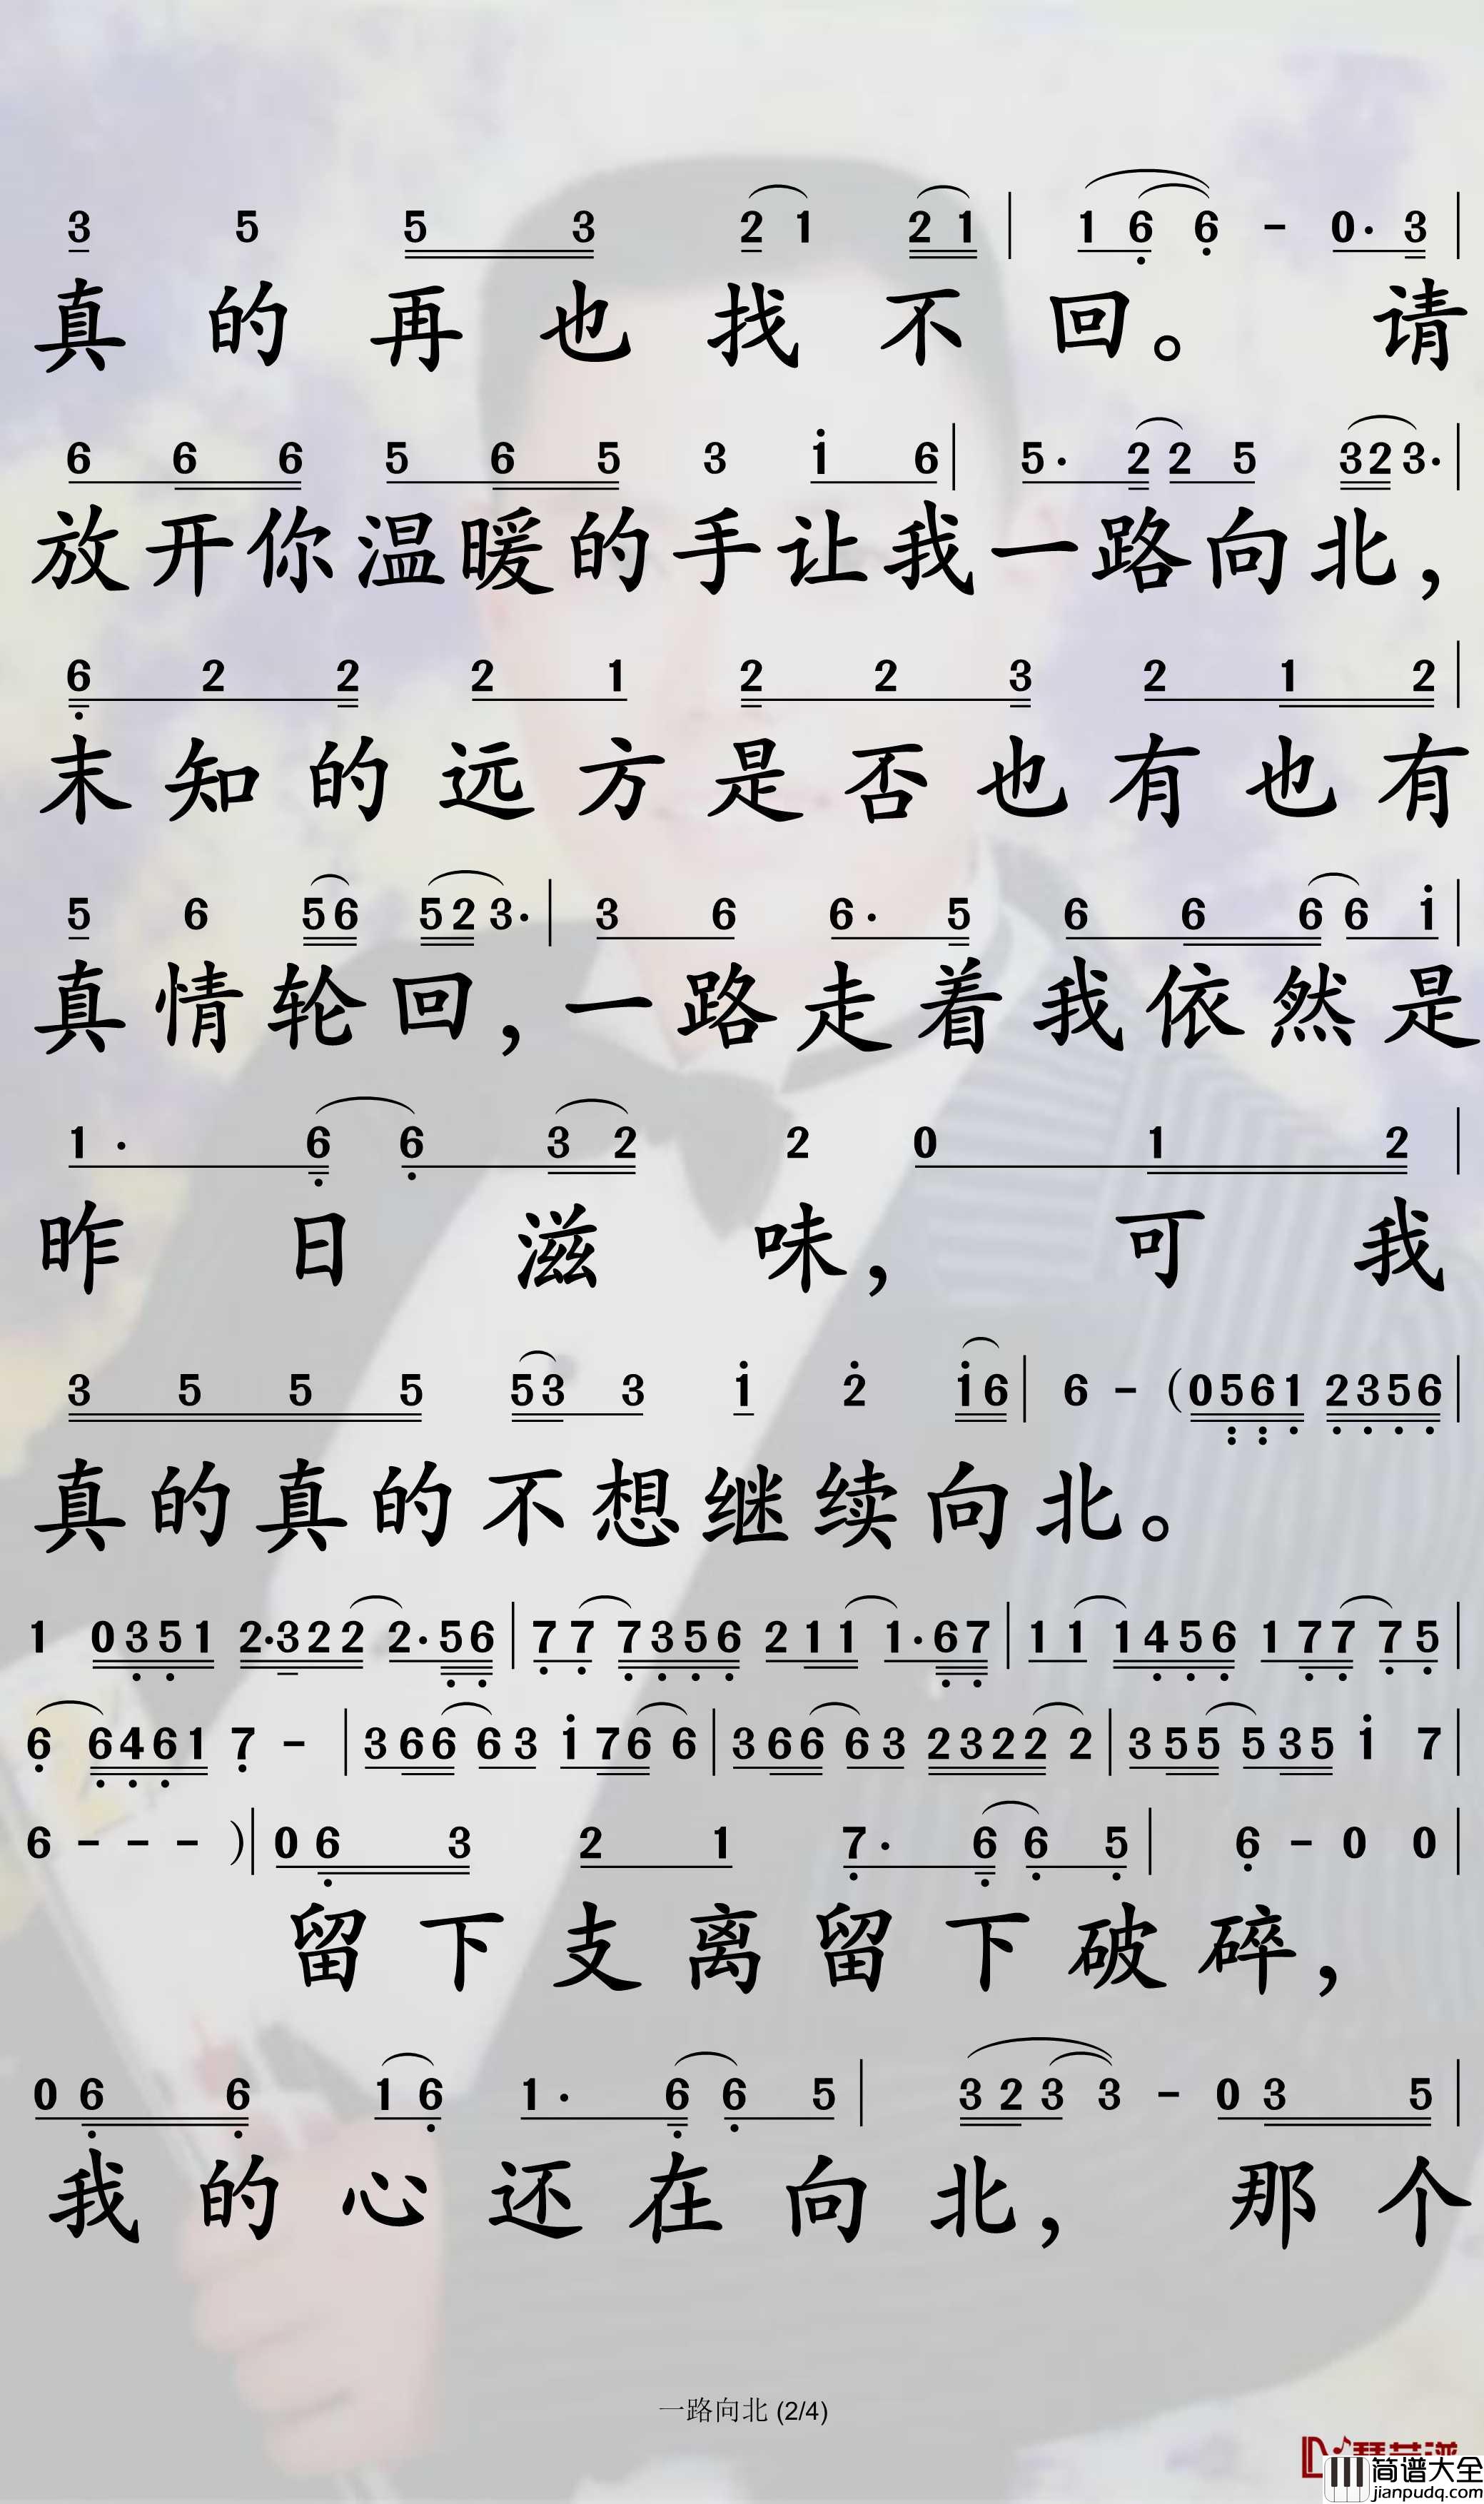 3 5 5 3 2 1 2 1 | 1 6 6 - 0· 3 |
真的再也找不回。 请
6 6 6 5 6 5 3 1 6 | 5· 2 2 5 3 2 3· |
放开你温暖的手让我一路向北，
6 2 2 2 1 2 2 3 2 1 2 |
末知的远方是否也有也有
5 6 5 6 5 2 3· | 3 6 6· 5 6 6 6 6 1 |
真情轮回，一路走着我依然是
1· 6 6 3 2 2 0 1 2 |
昨日滋味， 可我
3 5 5 5 5 3 3 1 2 1 6 | 6 - (0 5 6 1 2 3 5 6 |
真的真的不想继续向北。
1 0 3 5 1 2·3 2 2 2· 5 6 | 7 7 7 3 5 6 2 1 1 1· 6 7 | 1 1 1 4 5 6 1 7 7 7 5 |
6 6 4 6 1 7 - | 3 6 6 6 3 1 7 6 6 | 3 6 6 6 3 2 3 2 2 2 | 3 5 5 5 3 5 1 7 |
6 - - - ) | 0 6 3 2 1 7· 6 6 5 | 6 - 0 0 |
留下支离留下破碎，
0 6 6 1 6 1· 6 6 5 | 3 2 3 3 - 0 3 5 |
我的心还在向北， 那个
一路向北 (2/4)
简谱大全
jianpudq.com